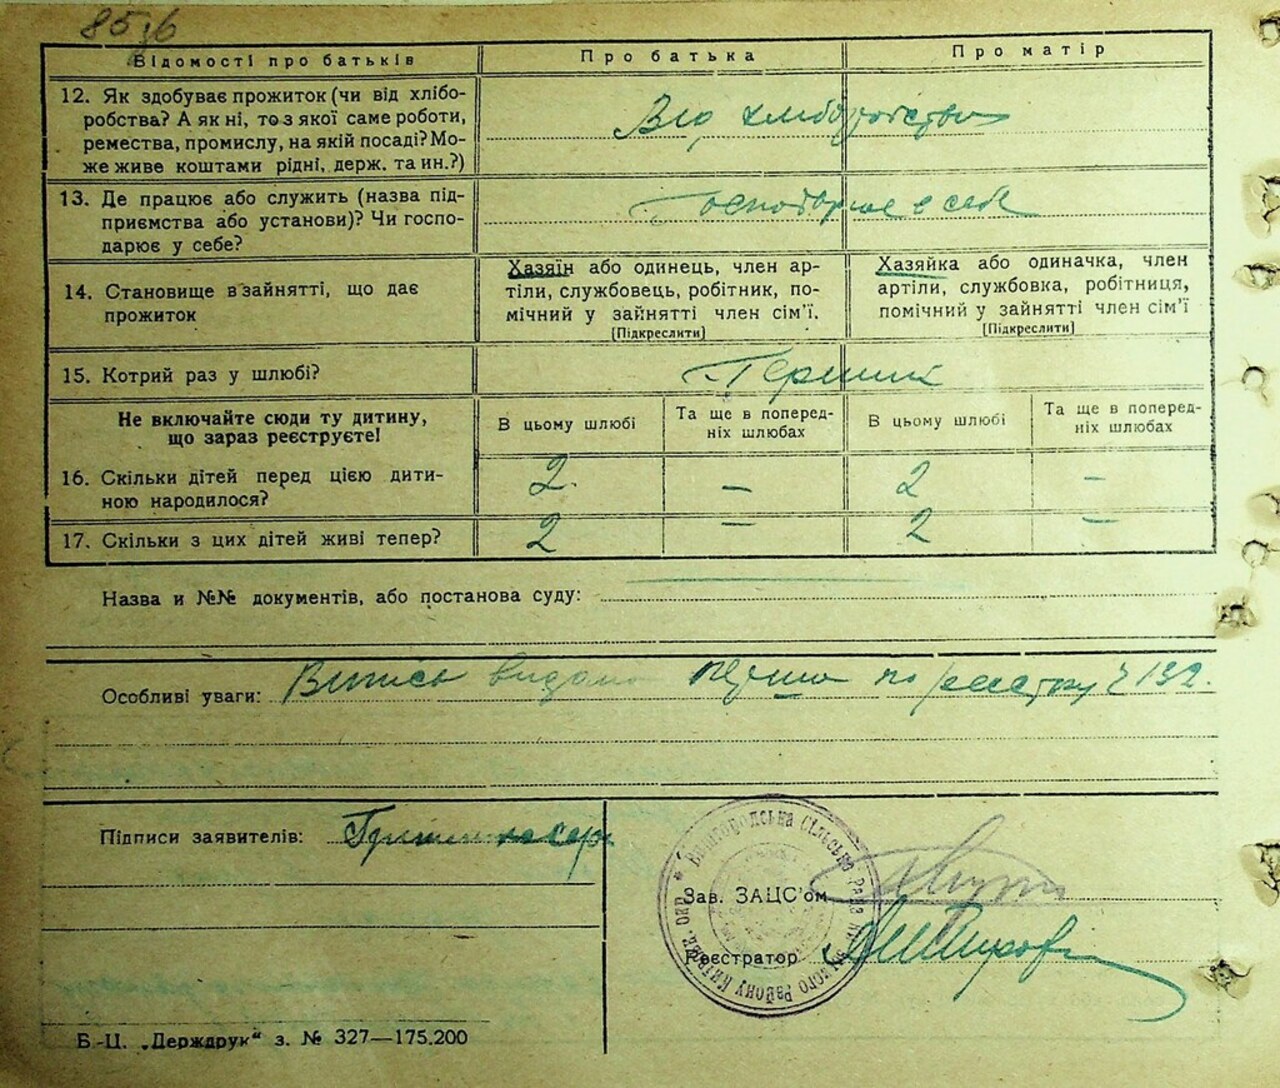 85зб
Відомості про батьків
Про батька
Про матір
12. Як здобуває прожиток (чи від хлібо-
робства? А як ні, то з якої саме роботи,
ремества, промислу, на якій посаді? Мо-
же живе коштами рідні, держ. та ин.?)
Від хліборобства
13. Де працює або служить (назва під-
приємства або установи)? Чи госпо-
дарює у себе?
Господарює в себе
14. Становище в зайнятті, що дає
прожиток
Хазяїн або одинець, член ар-
тілі, службовець, робітник, по-
мічний у зайнятті член сім'ї.
[Підкреслити]
Хазяйка або одиначка, член
артіли, службовка, робітниця,
помічний у зайнятті член сім'ї
[Підкреслити]
15. Котрий раз у шлюбі?
Перший
Не включайте сюди ту дитину,
що зараз реєструєте!
В цьому шлюбі
Та ще в поперед-
ніх шлюбах
В цьому шлюбі
Та ще в поперед-
ніх шлюбах
16. Скільки дітей перед цією дити-
ною народилося?
2 — 2 —
17. Скільки з цих дітей живі тепер?
2 — 2 —
Назва и №№ документів, або постанова суду:
Особливі уваги: Випись видано перша по реєстру Ч 132.
Підписи заявителів:
Вишгородська Сільська Рада
Району Київськ. окр.
Зав. ЗАЦС'ом
Реєстратор
Б.-Ц. „Держдрук“ з. № 327—175.200